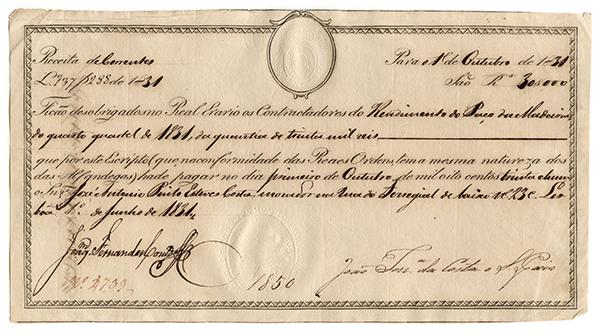 Receita de Correntes
L.º 737 f 288 de 1831
Para o 1º de Outubro de 1831
São R.s 30$000
Ficão desobrigados no Real Erario os Contractadores do Rendimento do Paço da Madeira
do quarto quartel de 1831, da quantia de trinta mil reis
que por este Escripto (que na conformidade das Reaes Ordens, tem a mesma natureza dos
das Alfandegas) hade pagar no dia primeiro de Outubro de mil oito centos trinta e hum
o Snr. José Antonio Pinto Esteves Costa, morador na rua do Ferregial de baixo Nº 23 C. Lis
boa 1º. de Junho de 1831
Joaq. Fernandes Couto
Nº 2799
1850
João da Costa e